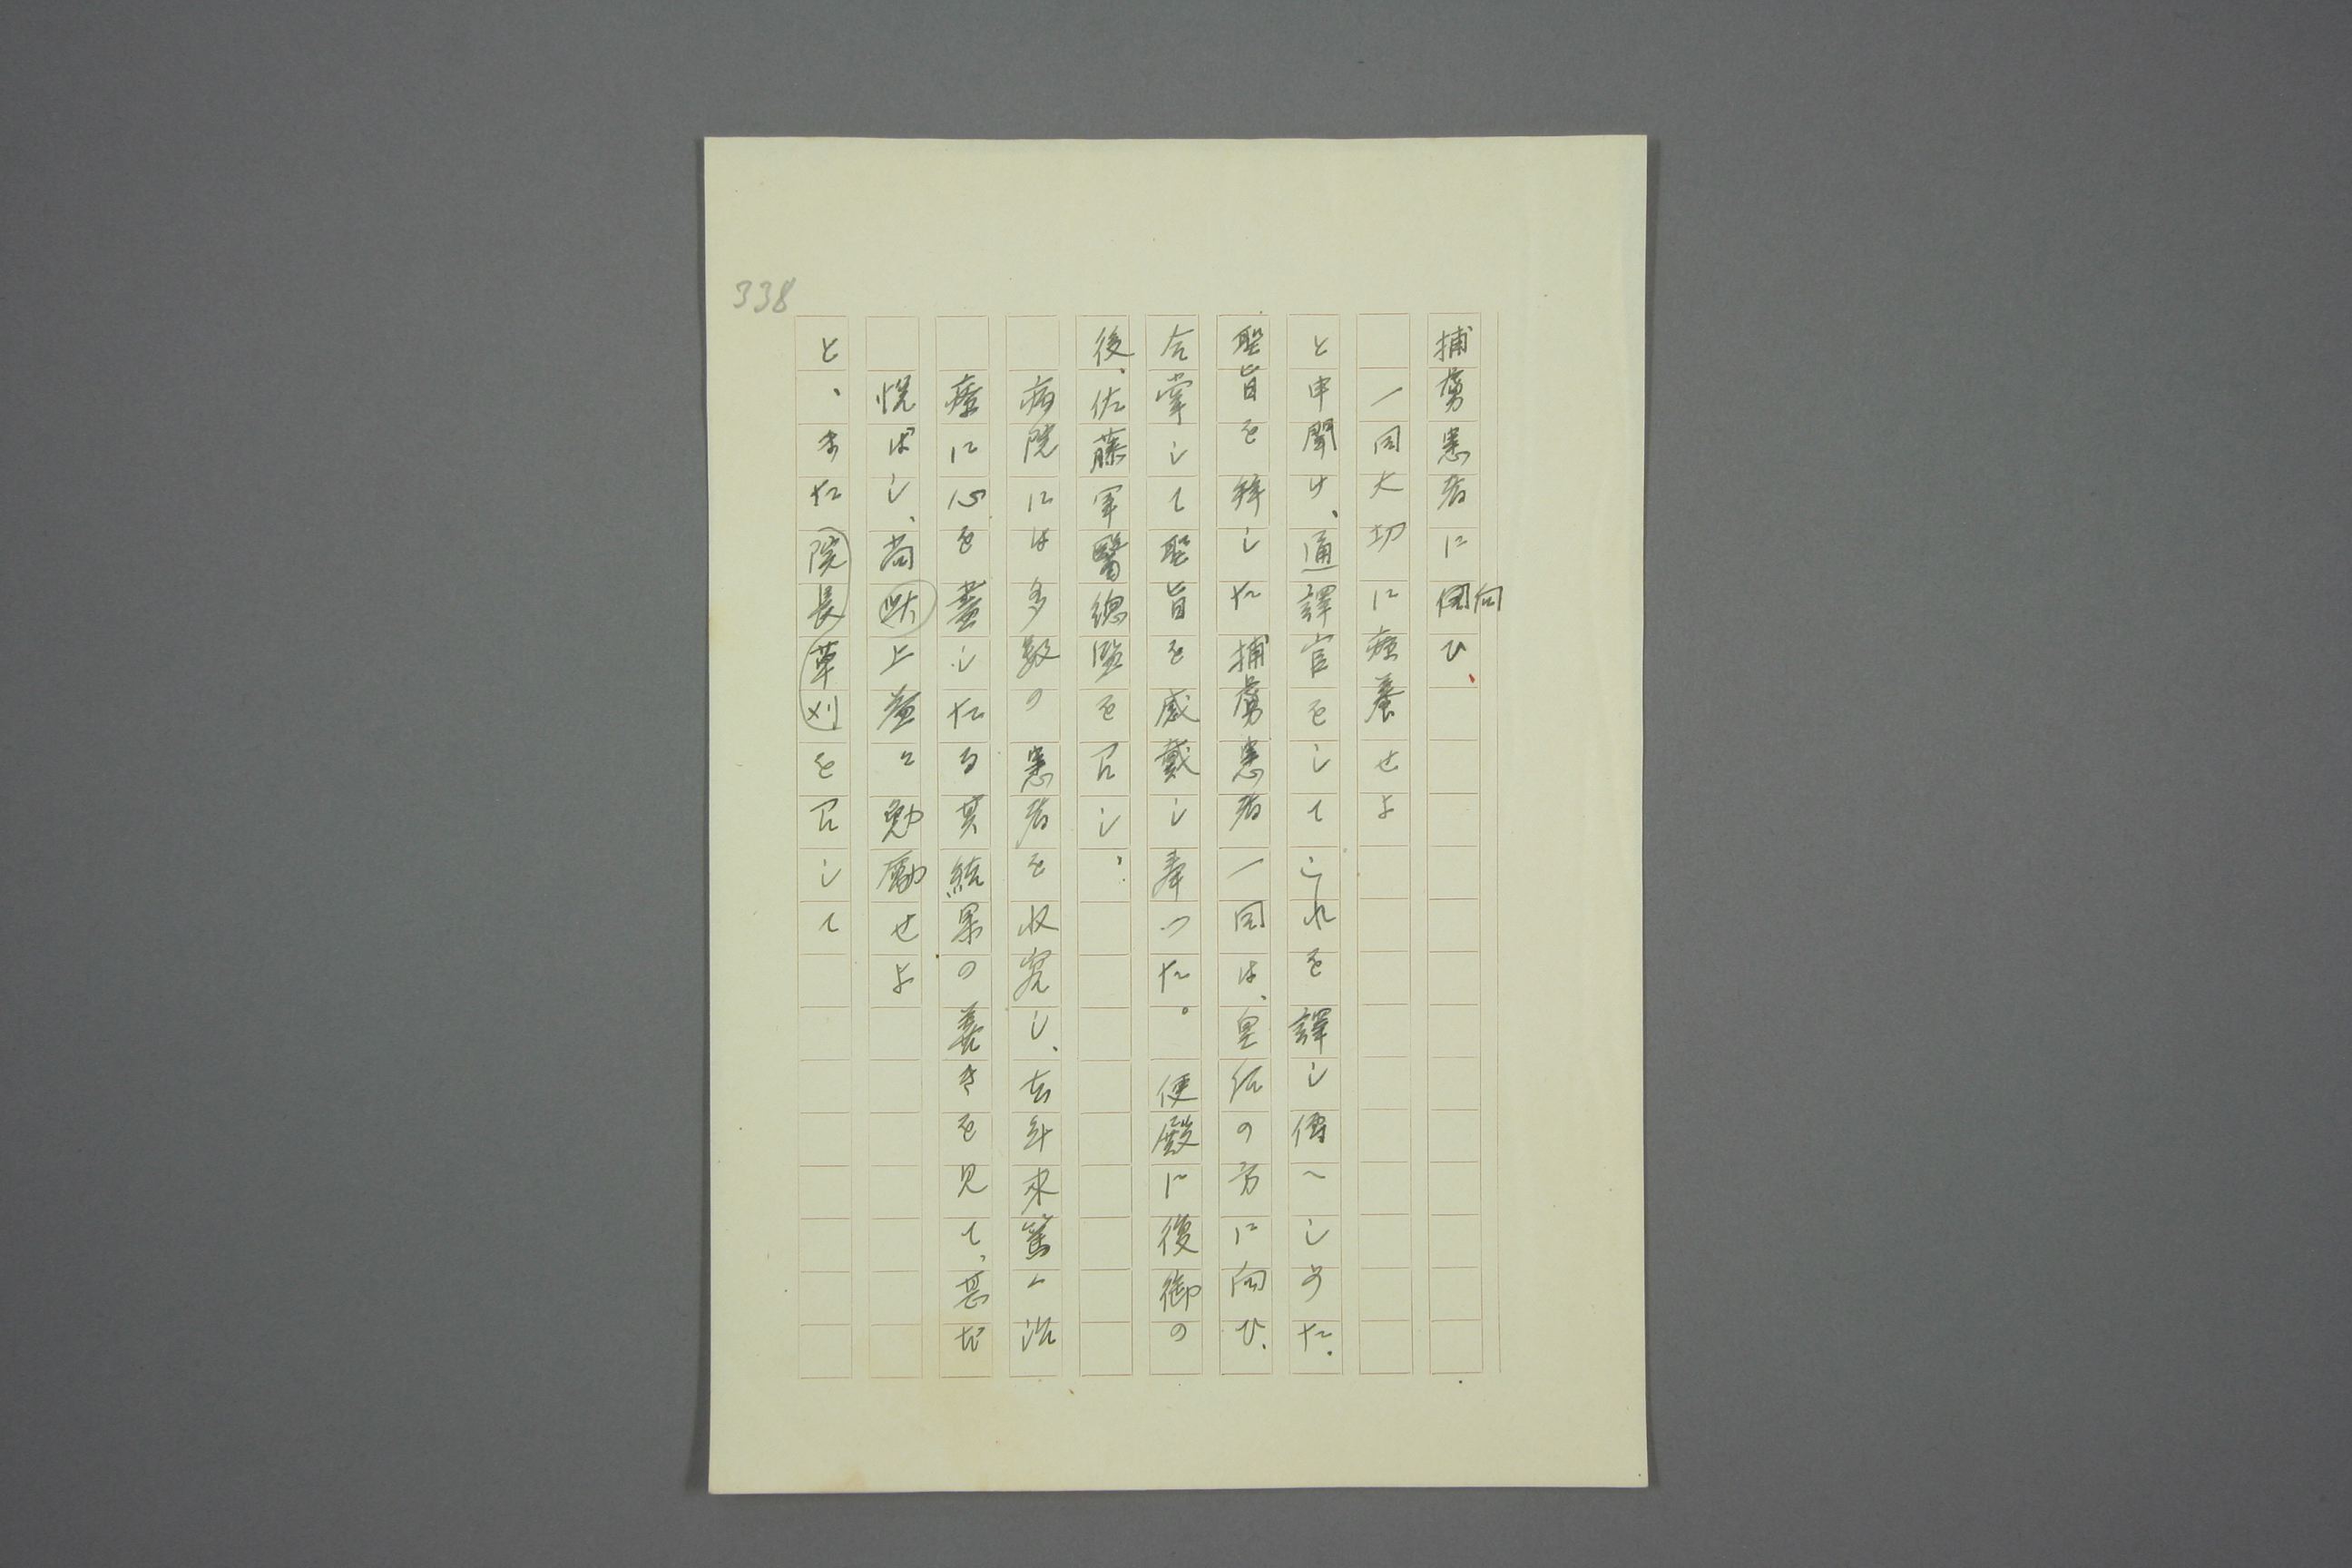 338
捕虜患者に向ひ、
一同大切に療養せよ
と申聞け、通譯官をしてこれを譯し傳へしめた。
聖旨を拜した捕虜患者一同は、皇后の方に向ひ、
合掌して聖旨を感戴し奉つた。便殿に復御の
後、佐藤軍醫總監を召し、
病院には多數の患者を收容し、去年來篤く治
療に心を盡したる其結果の善きを見て、甚だ
悦ばし、尚此上益々勉勵せよ
と、また院長草刈を召して